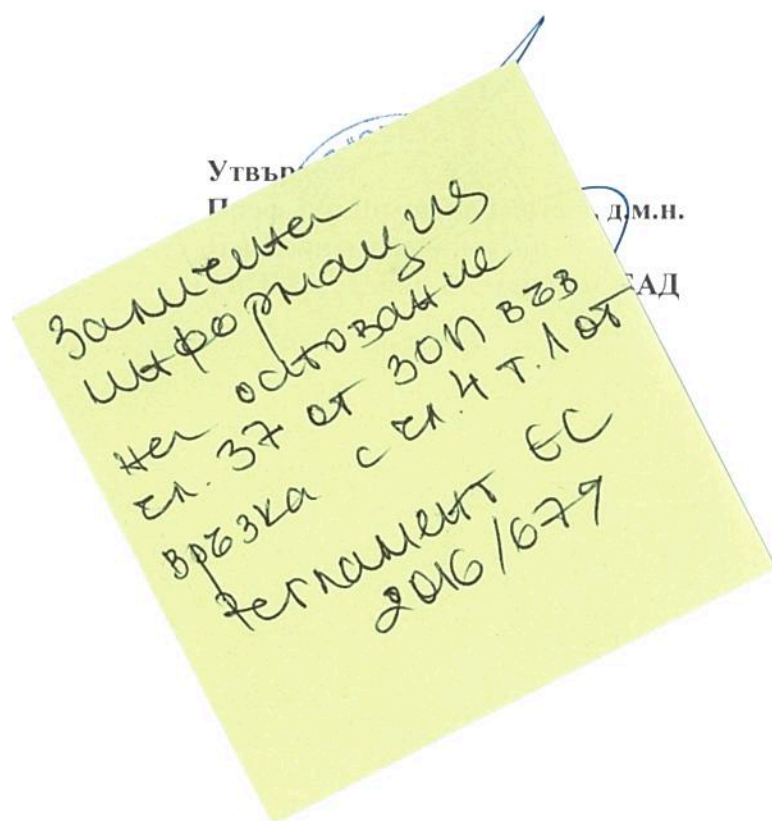 Утвър
П
, д.м.н.
ЕАД
Заличена
информация
на основание
чл. 37 от ЗОП във
връзка с чл. 4 т. 1 от
Регламент ЕС
2016/679